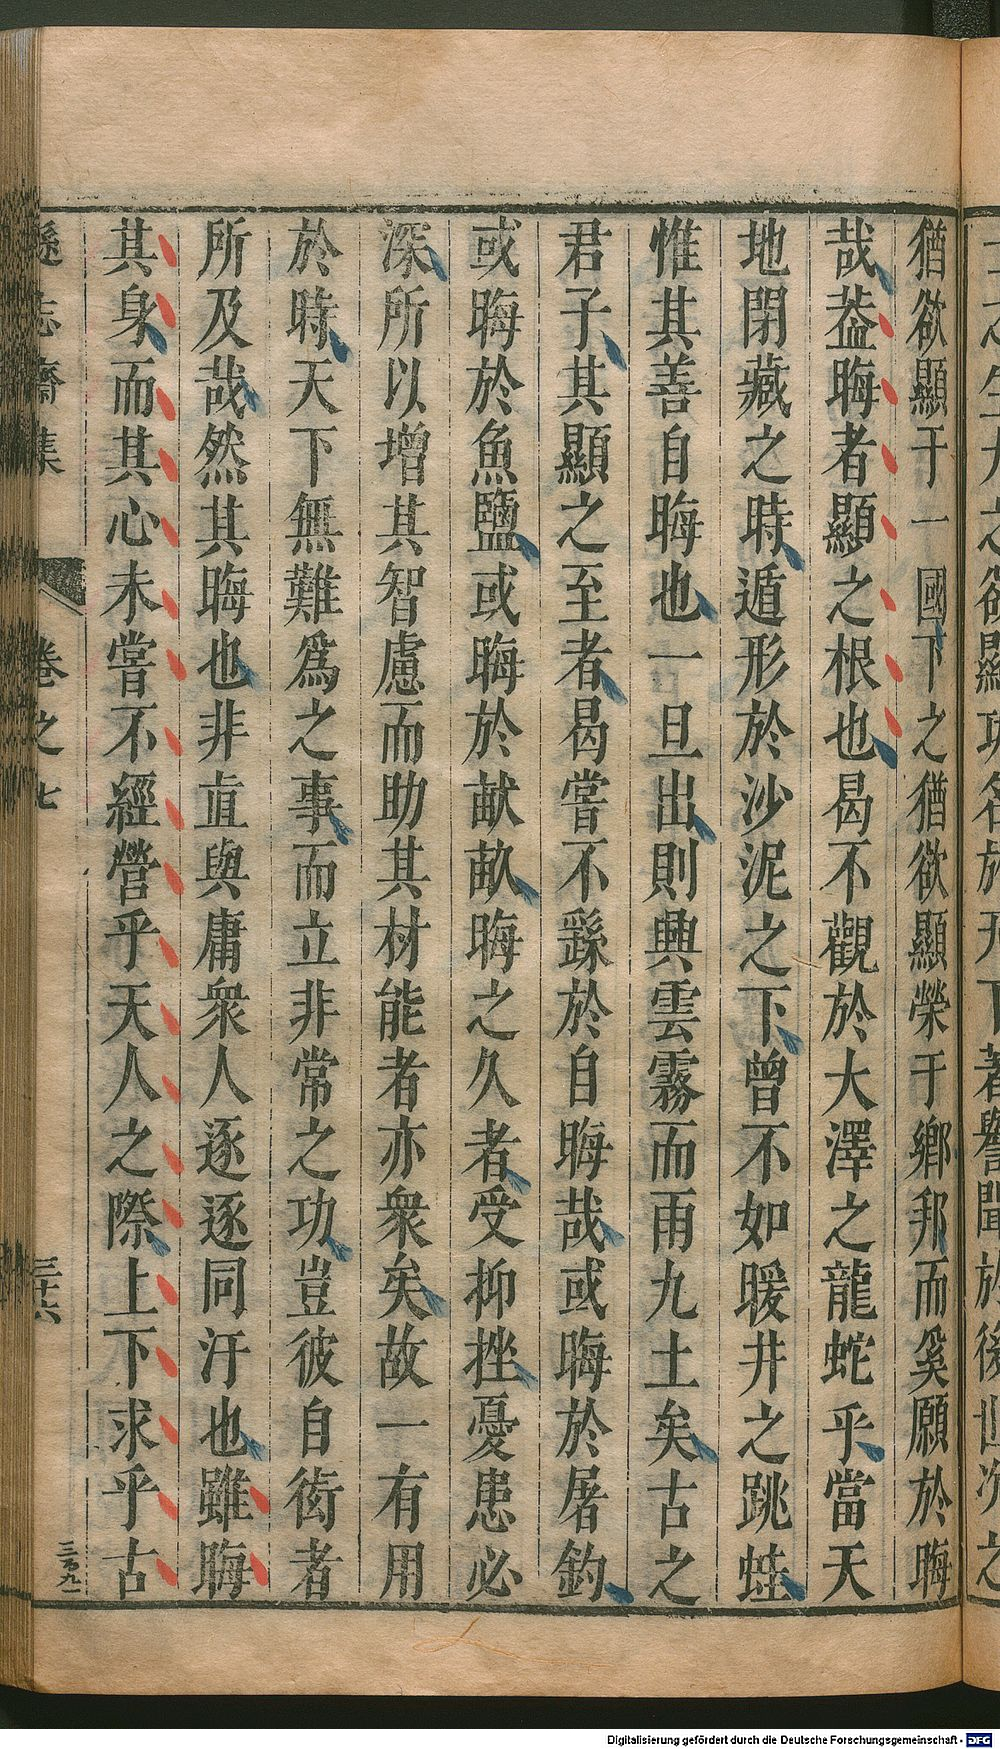 猶欲顯于一國下之猶欲顯榮于鄉邦而奚願於晦
哉葢晦者顯之根也曷不觀於大澤之龍蛇乎當天
地閉藏之時遁形於沙泥之下曾不如暖井之跳蛙
惟其善自晦也一旦出則興雲霧而雨九土矣古之
君子其顯之至者曷嘗不繇於自晦哉或晦於屠釣
或晦於魚鹽或晦於畎畝晦之久者受抑挫憂患必
深所以增其智慮而助其材能者亦衆矣故一有用
於時天下無難爲之事而立非常之功豈彼自衒者
所及哉然其晦也非直與庸衆人逐逐同汙也雖晦
其身而其心未嘗不經營乎天人之際上下求乎古
遜志齋集 卷之七 三十六
三百九一
Digitalisierung gefördert durch die Deutsche Forschungsgemeinschaft - DFG